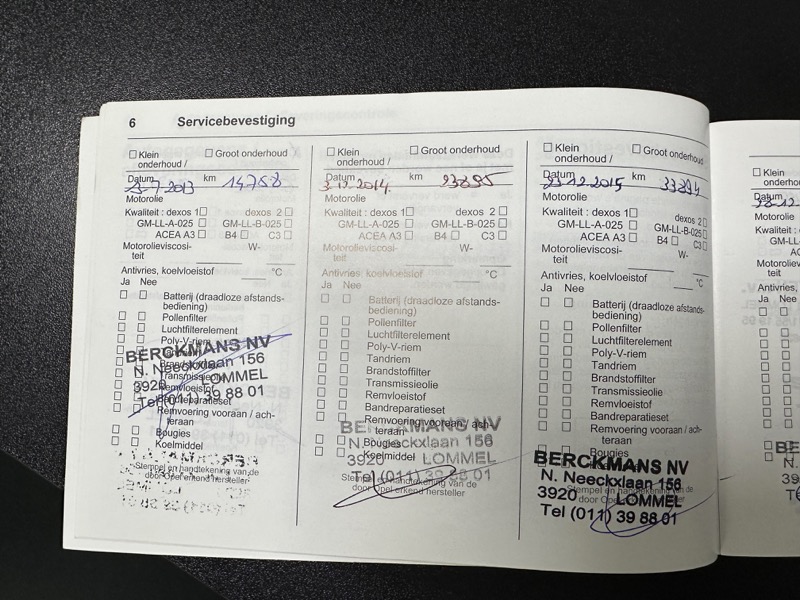 6 Servicebevestiging
Klein onderhoud / Groot onderhoud
Datum 3-7-2013 km 14758
Motorolie
Kwaliteit : dexos 1 dexos 2
GM-LL-A-025 GM-LL-B-025
ACEA A3 B4 C3
Motorolieviscosi- W-
teit
Antivries, koelvloeistof °C
Ja Nee
Batterij (draadloze afstands-
bediening)
Pollenfilter
Luchtfilterelement
Poly-V-riem
Brandstoffilter
Transmissieolie
Remvloeistof
Bandreparatieset
Remvoering vooraan / ach-
teraan
Bougies
Koelmiddel
BERCKMANS NV
N. Neeckxlaan 156
3920 LOMMEL
Tel (011) 39 88 01
Stempel en handtekening van de
door Opel erkend hersteller
Klein onderhoud / Groot onderhoud
Datum 3.12.2014 km 23885
Motorolie
Kwaliteit : dexos 1 dexos 2
GM-LL-A-025 GM-LL-B-025
ACEA A3 B4 C3
Motorolieviscosi- W-
teit
Antivries, koelvloeistof °C
Ja Nee
Batterij (draadloze afstands-
bediening)
Pollenfilter
Luchtfilterelement
Poly-V-riem
Tandriem
Brandstoffilter
Transmissieolie
Remvloeistof
Bandreparatieset
Remvoering vooraan / ach-
teraan
Bougies
Koelmiddel
BERCKMANS NV
N. Neeckxlaan 156
3920 LOMMEL
Tel (011) 39 88 01
Stempel en handtekening van de
door Opel erkend hersteller
Klein onderhoud / Groot onderhoud
Datum 23.12.2015 km 33894
Motorolie
Kwaliteit : dexos 1 dexos 2
GM-LL-A-025 GM-LL-B-025
ACEA A3 B4 C3
Motorolieviscosi- W-
teit
Antivries, koelvloeistof °C
Ja Nee
Batterij (draadloze afstands-
bediening)
Pollenfilter
Luchtfilterelement
Poly-V-riem
Tandriem
Brandstoffilter
Transmissieolie
Remvloeistof
Bandreparatieset
Remvoering vooraan / ach-
teraan
Bougies
BERCKMANS NV
N. Neeckxlaan 156
3920 LOMMEL
Tel (011) 39 88 01
Stempel en handtekening van de
door Opel erkend hersteller
Klein
onderhoud
Datum
Motorolie
Kwaliteit :
GM-LL
AC
Motorolievi
teit
Antivries,
Ja Nee
BE
N.
39
Te